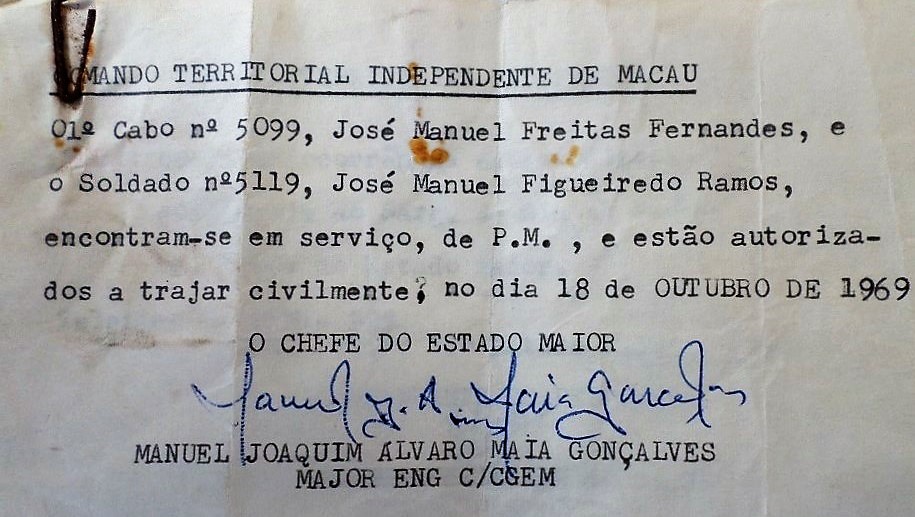 COMANDO TERRITORIAL INDEPENDENTE DE MACAU
O1º Cabo nº 5099, José Manuel Freitas Fernandes, e
o Soldado nº5119, José Manuel Figueiredo Ramos,
encontram-se em serviço, de P.M. , e estão autoriza-
dos a trajar civilmente, no dia 18 de OUTUBRO DE 1969
O CHEFE DO ESTADO MAIOR
MANUEL JOAQUIM ALVARO MAIA GONÇALVES
MAJOR ENG C/CGEM